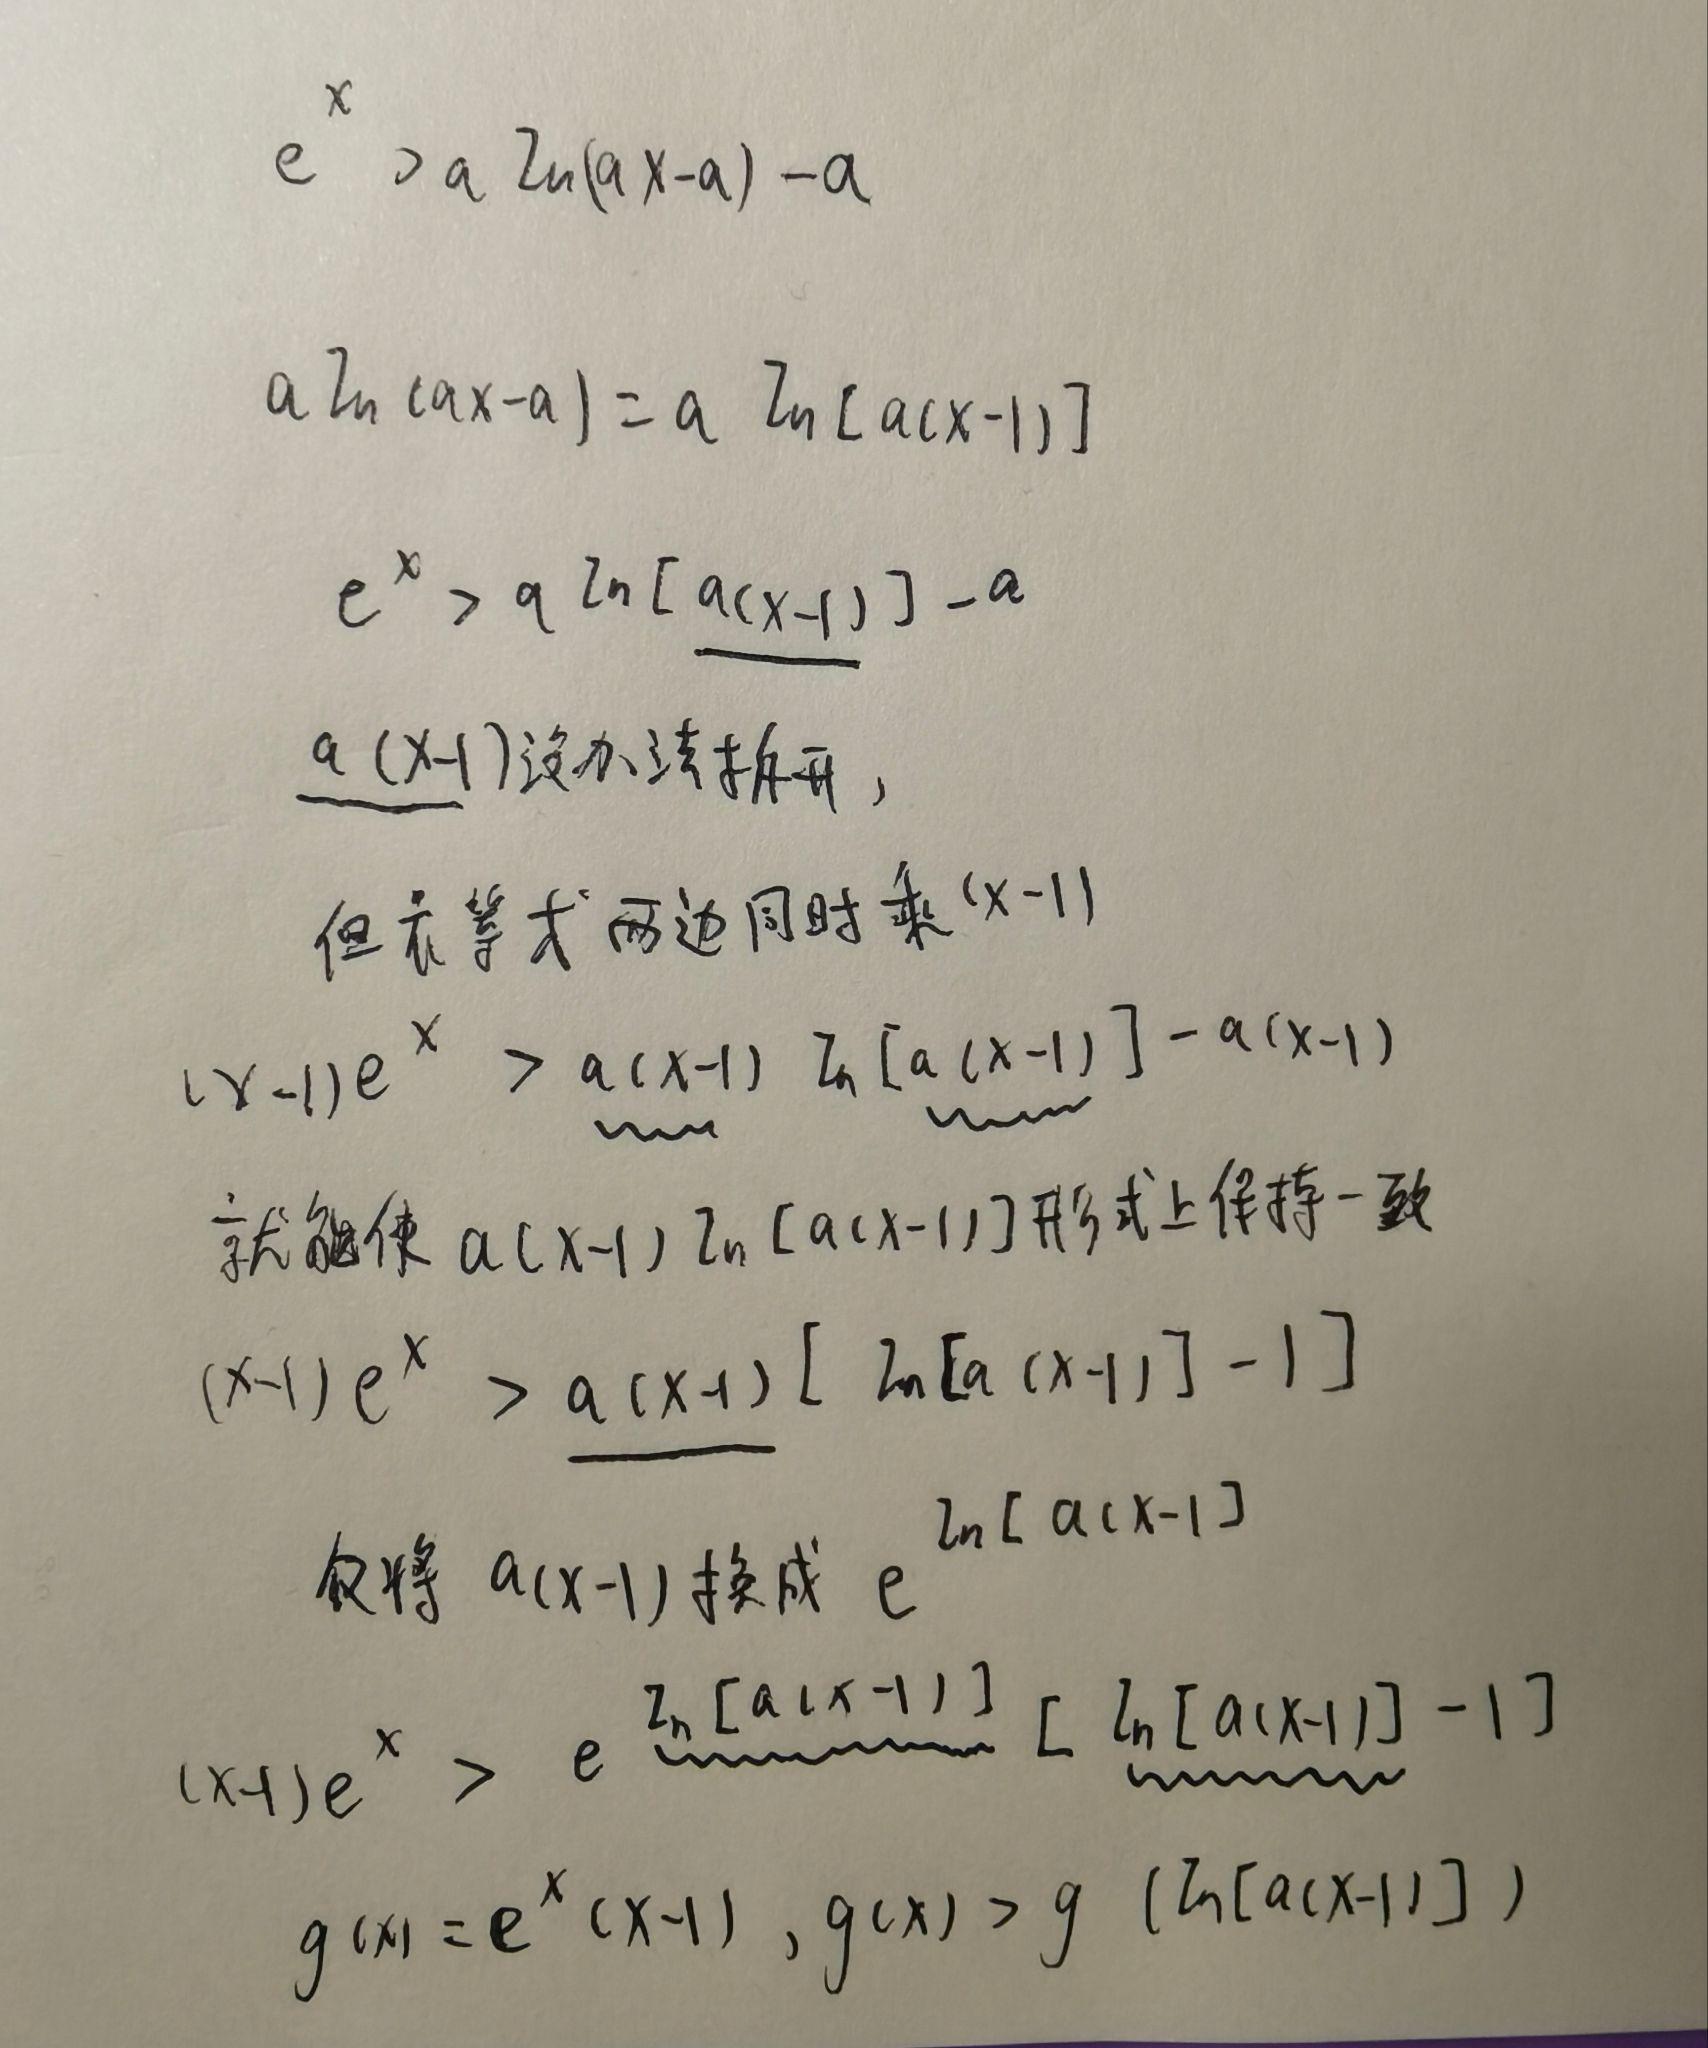 e^x > a ln(ax-a) -a
a ln(ax-a) = a ln[a(x-1)]
e^x > a ln[a(x-1)] -a
a(x-1)没办法拆开,
但在等式两边同时乘(x-1)
(x-1)e^x > a(x-1) ln[a(x-1)] - a(x-1)
就能使 a(x-1) ln[a(x-1)]形式上保持一致
(x-1)e^x > a(x-1)[ ln[a(x-1)] -1]
仅将 a(x-1)换成 e^ln[a(x-1]
(x-1)e^x > e^ln[a(x-1)] [ln[a(x-1)] -1]
g(x) = e^x(x-1), g(x) > g (ln[a(x-1)])